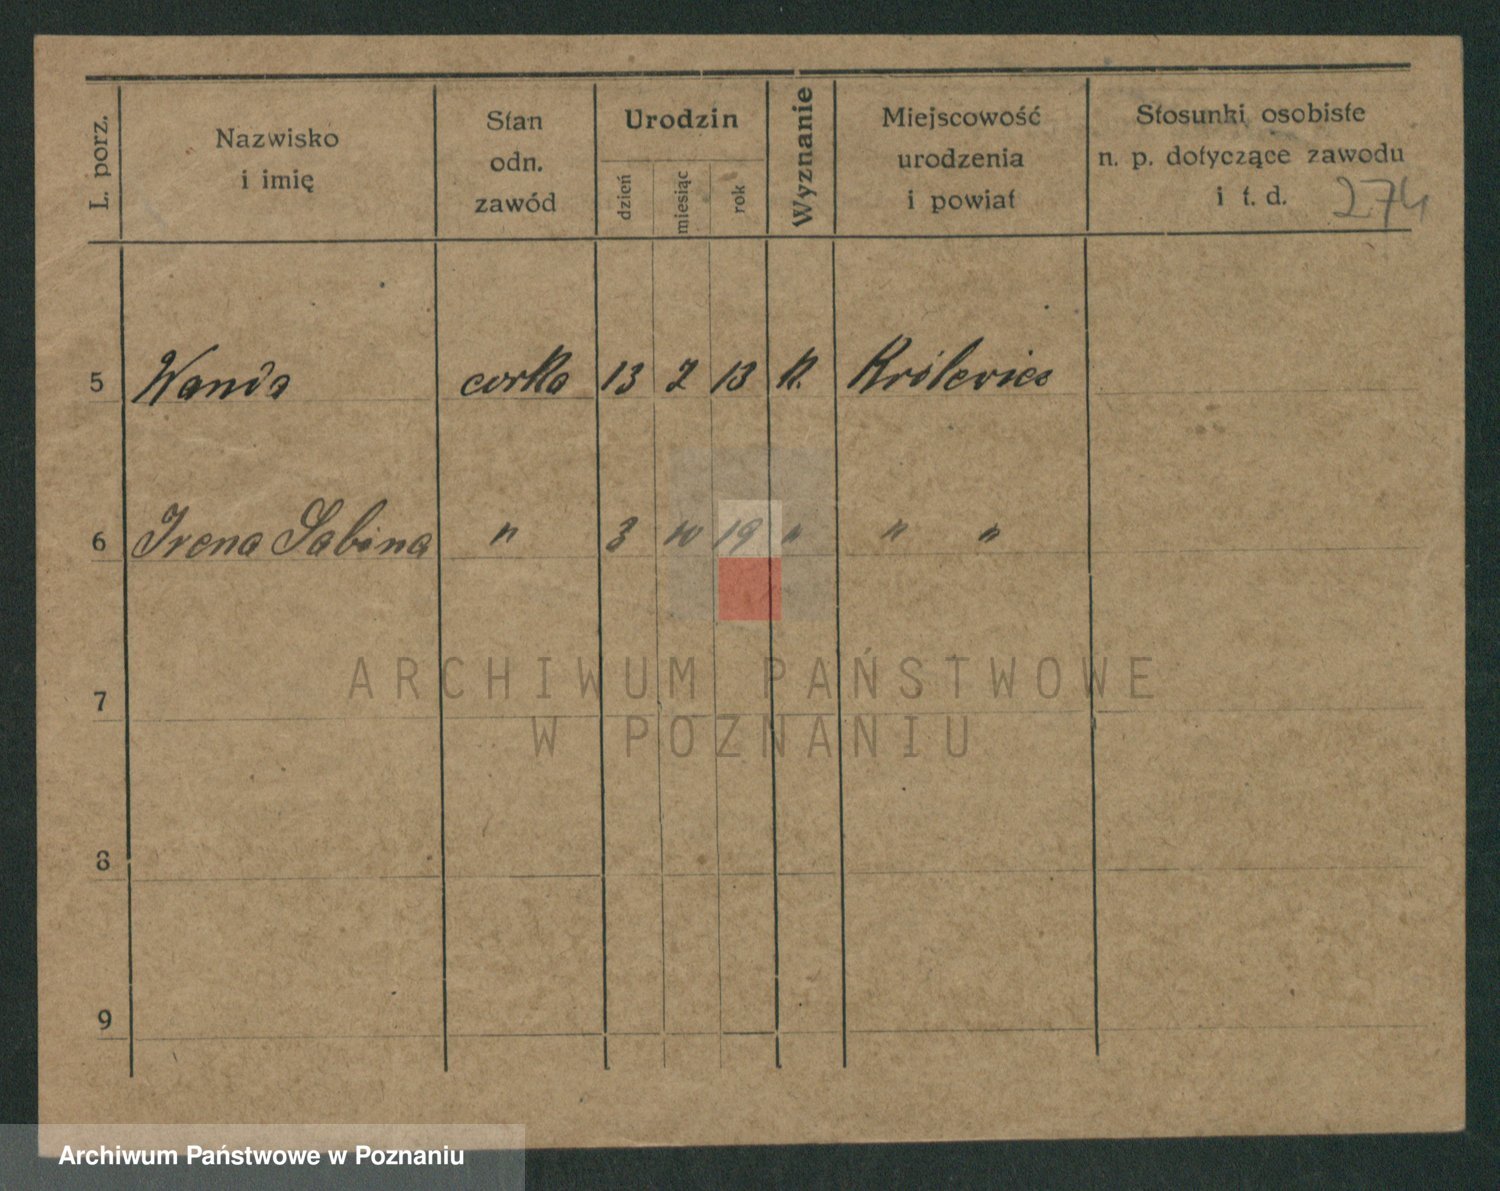 L. porz.
Nazwisko
i imię
Stan
odn.
zawód
Urodzin
dzień
miesiąc
rok
Wyznanie
Miejscowość
urodzenia
i powiat
Stosunki osobiste
n. p. dotyczące zawodu
i t. d.
274
5 Wanda corka 13 2 13 K. Królewiec
6 Irena Sabina " 3 10 19 " " "
7
8
9
ARCHIWUM PAŃSTWOWE
W POZNANIU
Archiwum Państwowe w Poznaniu